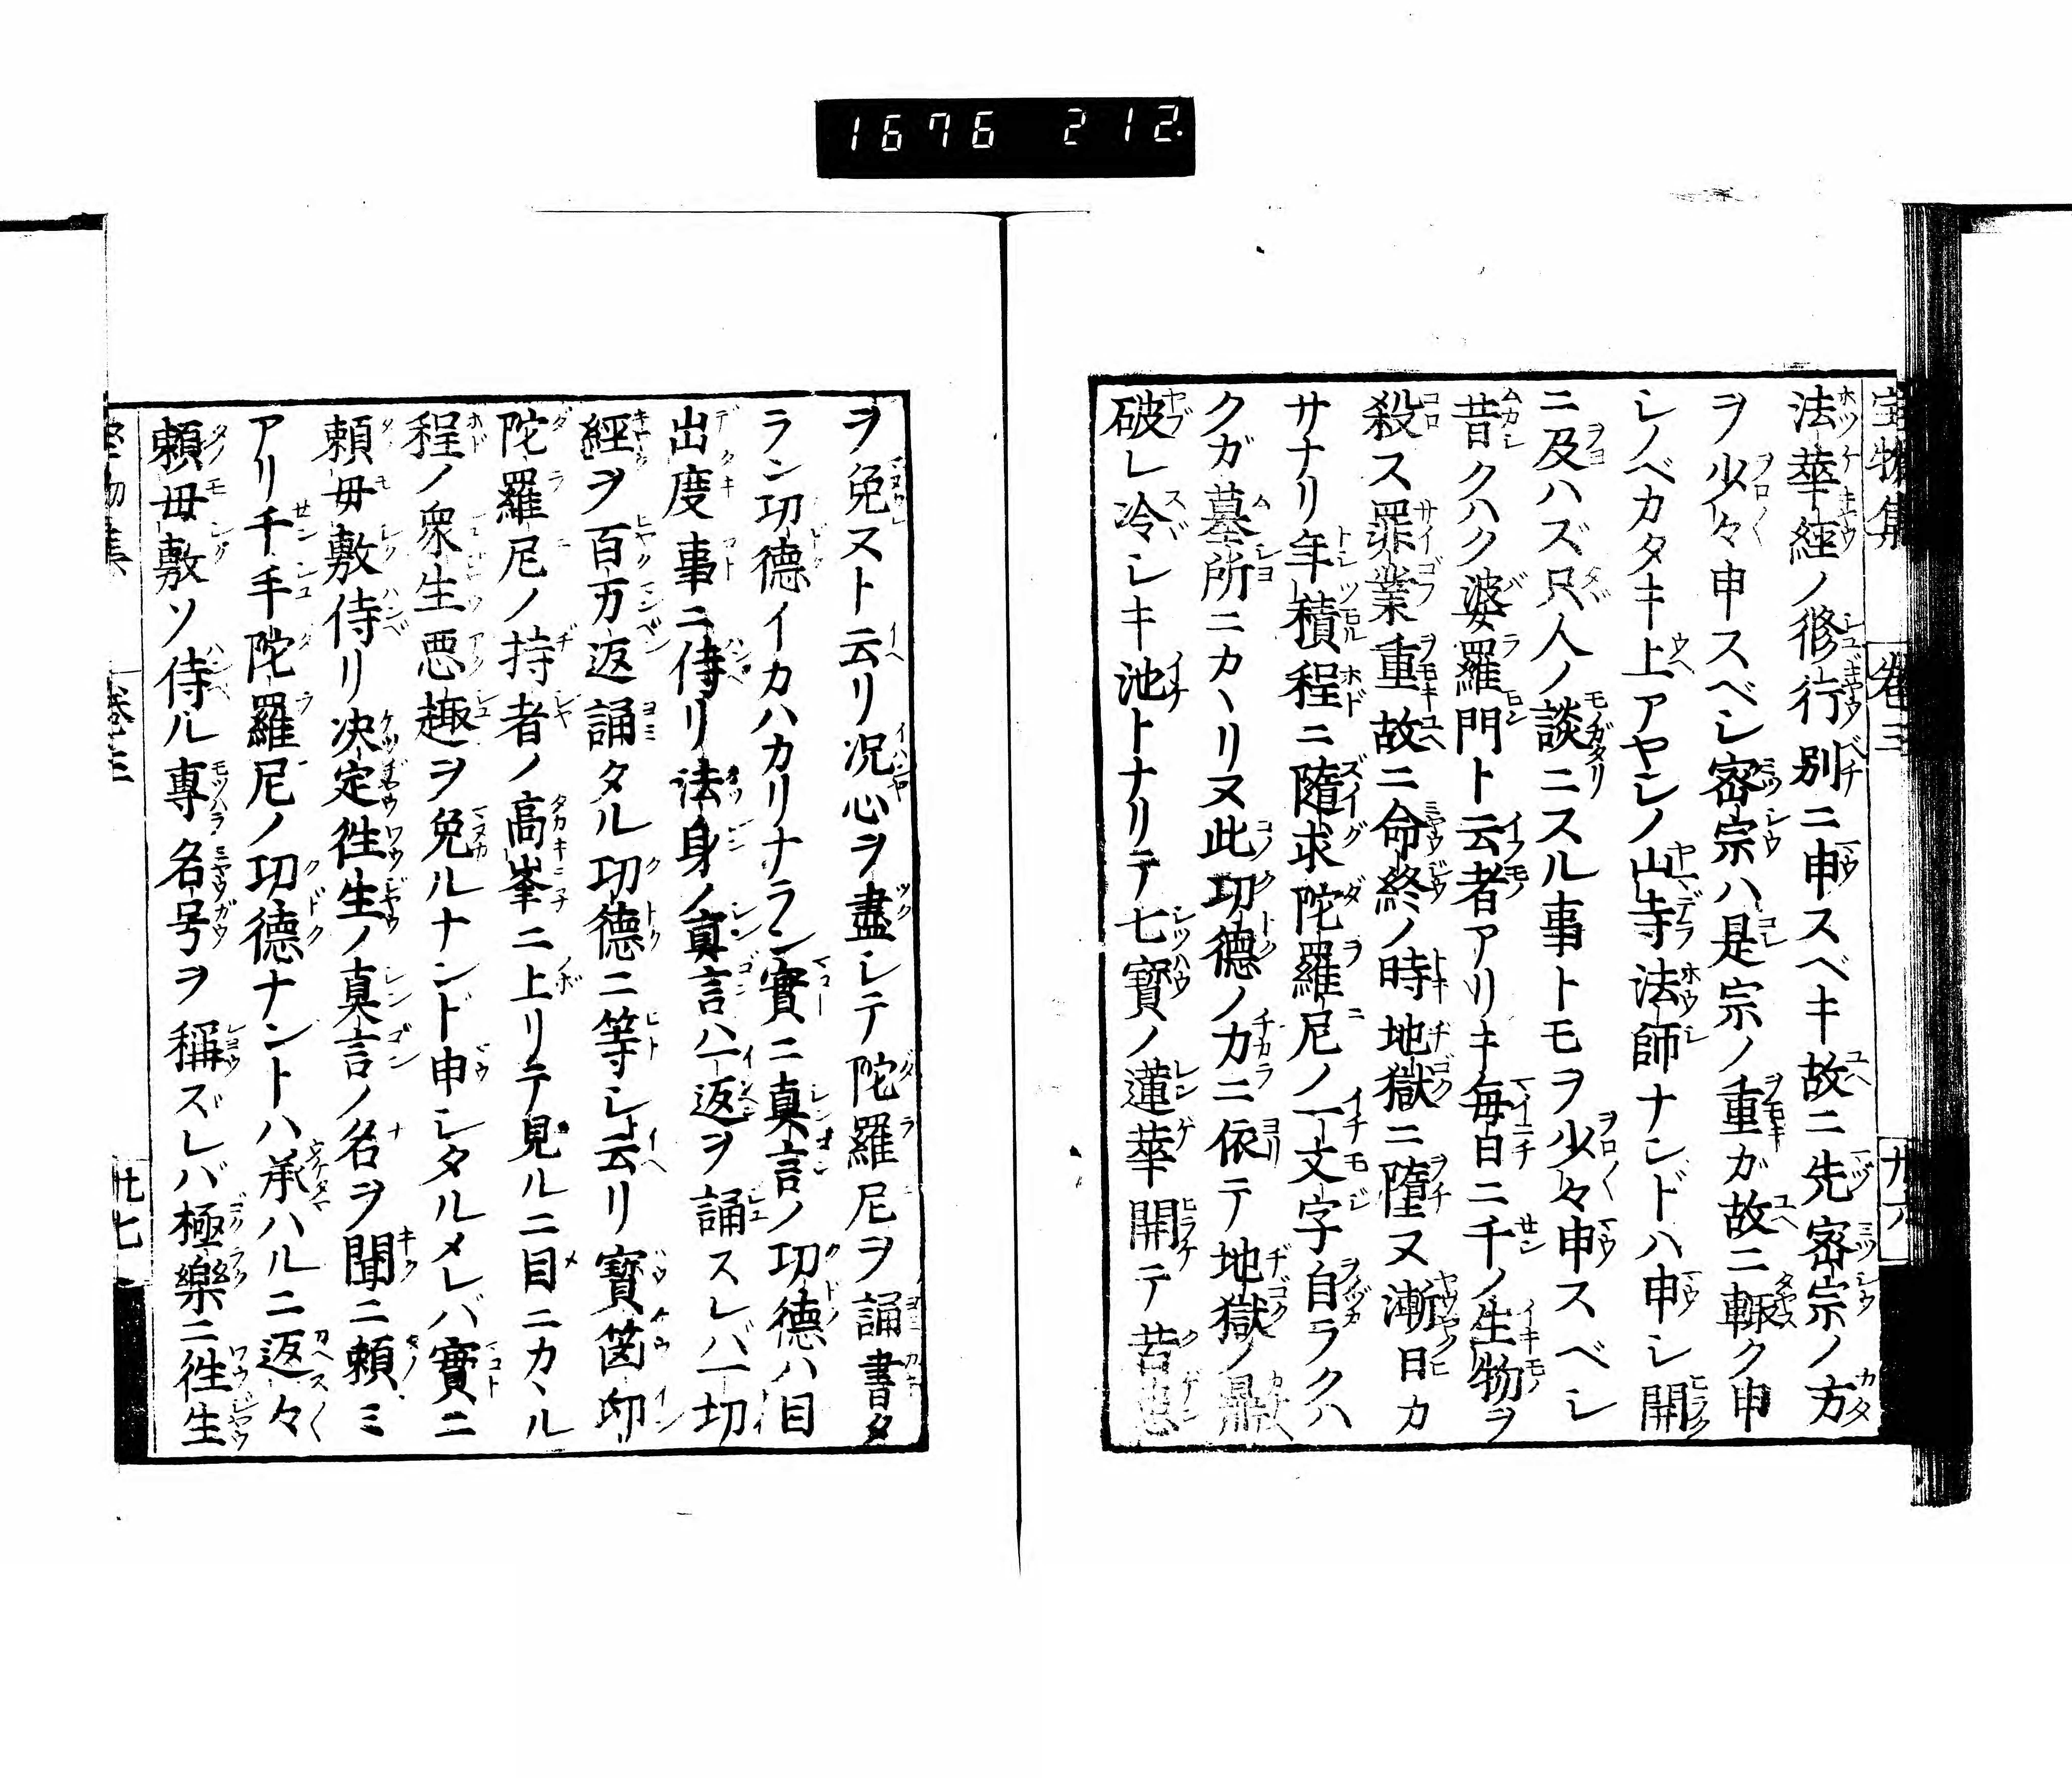 1676 212.
宝物集 巻三 廿六
法華經ノ修行別ニ申スベキ故ニ先密宗ノ方
ヲ少々申スベシ密宗ハ是宗ノ重ガ故ニ輙ク申
シノベカタキ上アヤシノ山寺法師ナンドハ申シ開
ニ及ハズ只人ノ談ニスル事トモヲ少々申スベシ
昔クハク婆羅門ト云者アリキ毎日ニ千ノ生物ヲ
殺ス罪業重故ニ命終ノ時地獄ニ墮ヌ漸日カ
サナリ年積程ニ隨求陀羅尼ノ一文字自ラクハ
クガ墓所ニカヽリヌ此功德ノカニ依テ地獄ノ
破レ冷シキ池トナリテ七寳ノ蓮華開テ苦
ヲ免ヌト云リ况心ヲ盡シテ陀羅尼ヲ誦書タ
ラン功德イカハカリナラン實ニ真言ノ功德ハ目
出度事ニ侍リ法身ノ真言ハ一返ヲ誦スレバ一切
經ヲ百万返誦タル功德ニ等シト云リ寳篋印
陀羅尼ノ持者ノ高峯ニ上リテ見ルニ目ニカヽル
程ノ衆生悪趣ヲ免ルナンド申シタルメレバ實ニ
頼毋敷侍リ决定徃生ノ真言ノ名ヲ聞ニ頼ミ
アリ千手陀羅尼ノ功德ナントハ承ハルニ返々
頼毋敷ソ侍ル專名号ヲ稱ズレバ極樂ニ徃生
巻三 廿七